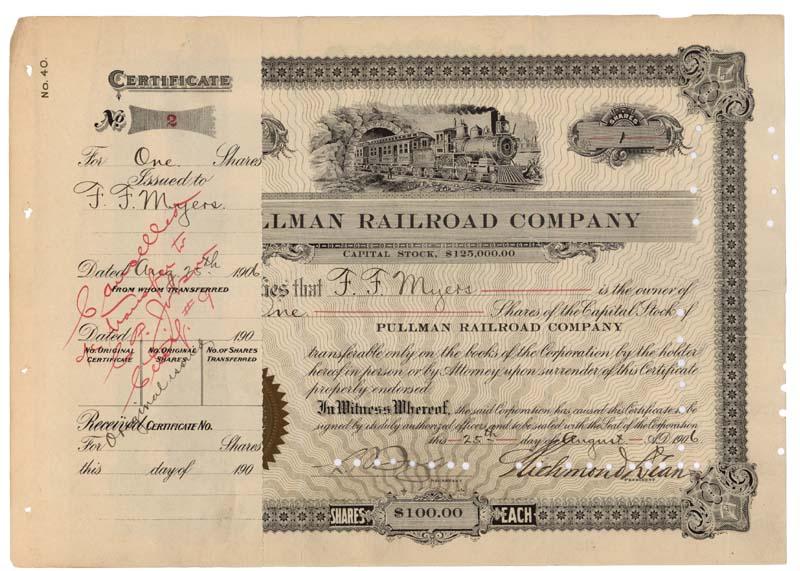 No. 40.
CERTIFICATE
No 2
For One. Shares
Issued to
F. F. Myers.
Dated Aug 25th 1906
FROM WHOM TRANSFERRED
Cancelled
transfer to
#9
Dated 190
NO. ORIGINAL CERTIFICATE
NO. ORIGINAL SHARES
NO. OF SHARES TRANSFERRED
Original issue
Received CERTIFICATE NO.
For Shares
this day of 190
SHARES
1
LLMAN RAILROAD COMPANY
CAPITAL STOCK, $125,000.00
ies that F. F. Myers is the owner of
ne Shares of the Capital Stock of
PULLMAN RAILROAD COMPANY
transferable only on the books of the Corporation by the holder
hereof in person or by Attorney upon surrender of this Certificate
properly endorsed.
In Witness Whereof, the said Corporation has caused this Certificate to be
signed by its duly authorized officers and to be sealed with the Seal of the Corporation
this 25th day of August A.D. 1906
Richmond Dean
SECRETARY
PRESIDENT
SHARES $100.00 EACH